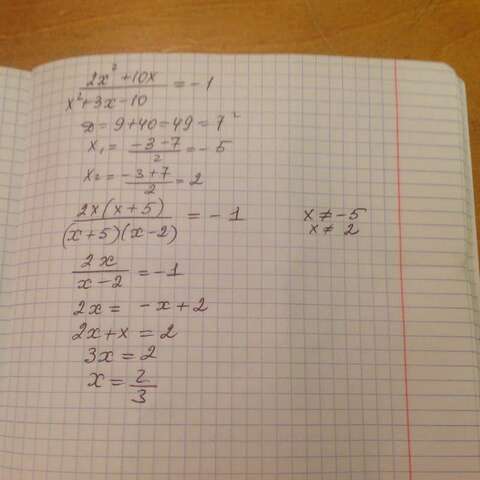 (2x² + 10x)/(x² + 3x - 10) = -1
D = 9 + 40 = 49 = 7²
x₁ = (-3 - 7)/2 = -5
x₂ = (-3 + 7)/2 = 2
2x(x + 5)/((x + 5)(x - 2)) = -1 x ≠ -5
x ≠ 2
2x/(x - 2) = -1
2x = -x + 2
2x + x = 2
3x = 2
x = 2/3